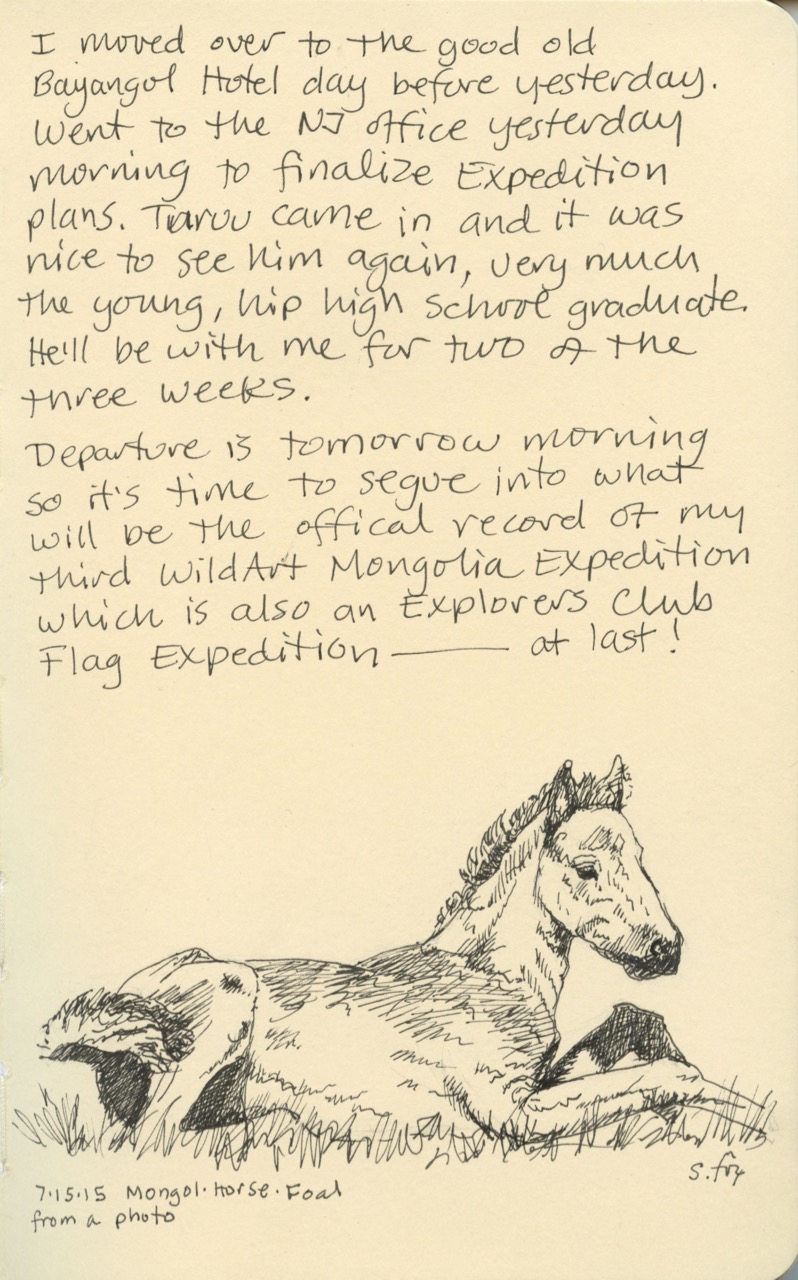 I moved over to the good old
Bayangol Hotel day before yesterday.
Went to the NJ office yesterday
morning to finalize Expedition
plans. came in and it was
nice to see him again, very much
the young, hip high school graduate.
He'll be with me for two of the
three weeks.
Departure is tomorrow morning
so it's time to segue into what
will be the offical record of my
third WildArt Mongolia Expedition
which is also an Explorers Club
Flag Expedition — at last!
S. Fox
7.15.15 Mongol·Horse·Foal
from a photo